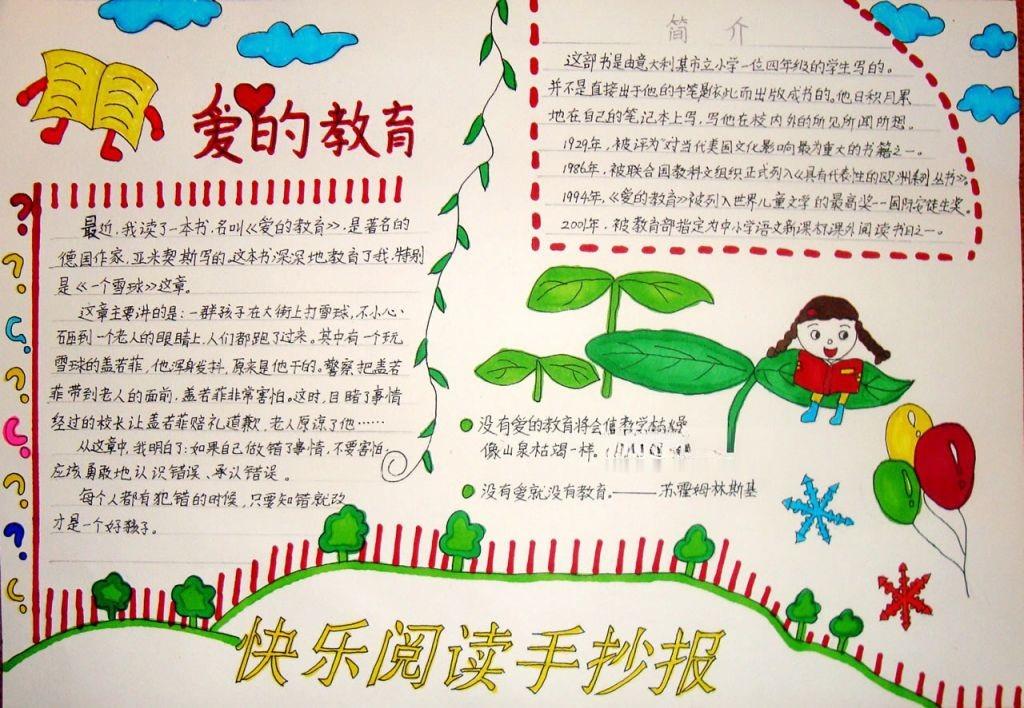 爱的教育
最近,我读了一本书,名叫《爱的教育》,是著名的
德国作家,亚米契斯写的。这本书深深地教育了我,特别
是《一个雪球》这章。
这章主要讲的是:一群孩子在大街上打雪球,不小心
砸到一个老人的眼睛上,人们都跑了过来。其中有一个玩
雪球的盖若菲,他浑身发抖,原来是他干的。警察把盖若
菲带到老人的面前,盖若菲非常害怕。这时,目睹了事情
经过的校长让盖若菲赔礼道歉,老人原谅了他……
从这章中,我明白了:如果自己做错了事情,不要害怕,
应该勇敢地认识错误、承认错误。
每个人都有犯错的时候,只要知错就改,
才是一个好孩子。
简 介
这部书是由意大利某市立小学一位四年级的学生写的。
并不是直接出于他的手笔就依此而出版成书的。他日积月累
地在自己的笔记本上写,写他在校内外的所见所闻所想。
1929年,被评为"对当代美国文化影响最为重大的书籍之一。
1986年,被联合国教科文组织正式列入《具有代表性的欧洲系列丛书》。
1994年,《爱的教育》被列入世界儿童文学的最高奖--国际安徒生奖。
2001年,被教育部指定为中小学语文新课标课外阅读书目之一。
没有爱的教育将会使教学枯燥
像山泉枯竭一样。
没有爱就没有教育。——苏霍姆林斯基
快乐阅读手抄报